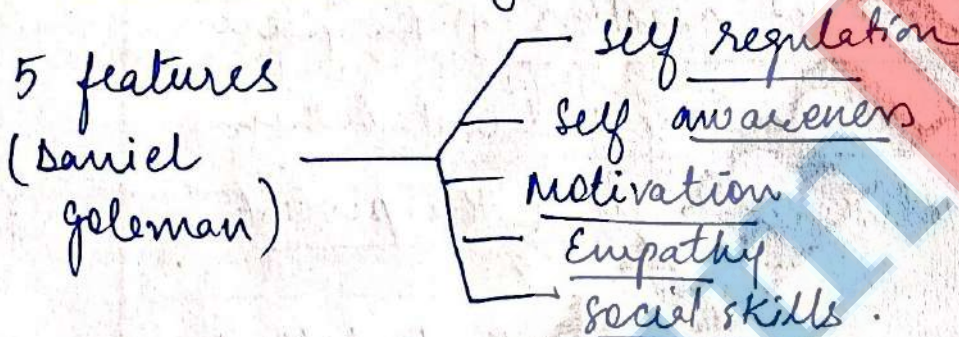 5 features
(Daniel
goleman)
self regulation
self awareness
Motivation
Empathy
social skills.